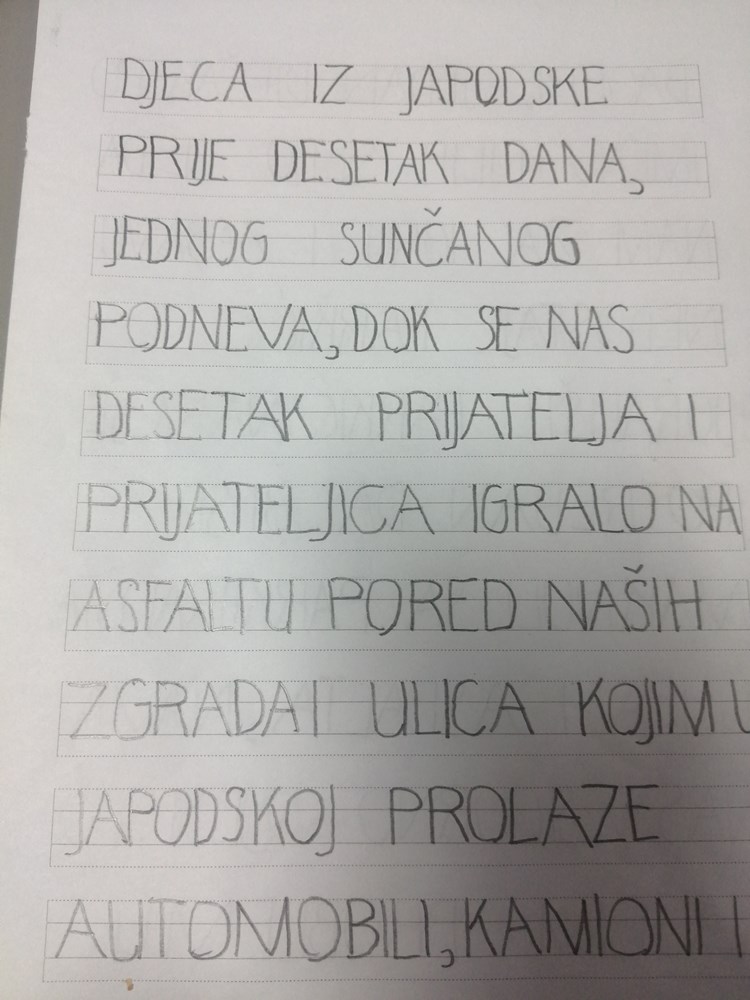 DJECA IZ JAPODSKE
PRIJE DESETAK DANA,
JEDNOG SUNČANOG
PODNEVA, DOK SE NAS
DESETAK PRIJATELJA I
PRIJATELJICA IGRALO NA
ASFALTU PORED NAŠIH
ZGRADA I ULICA KOJIM U
JAPODSKOJ PROLAZE
AUTOMOBILI, KAMIONI I